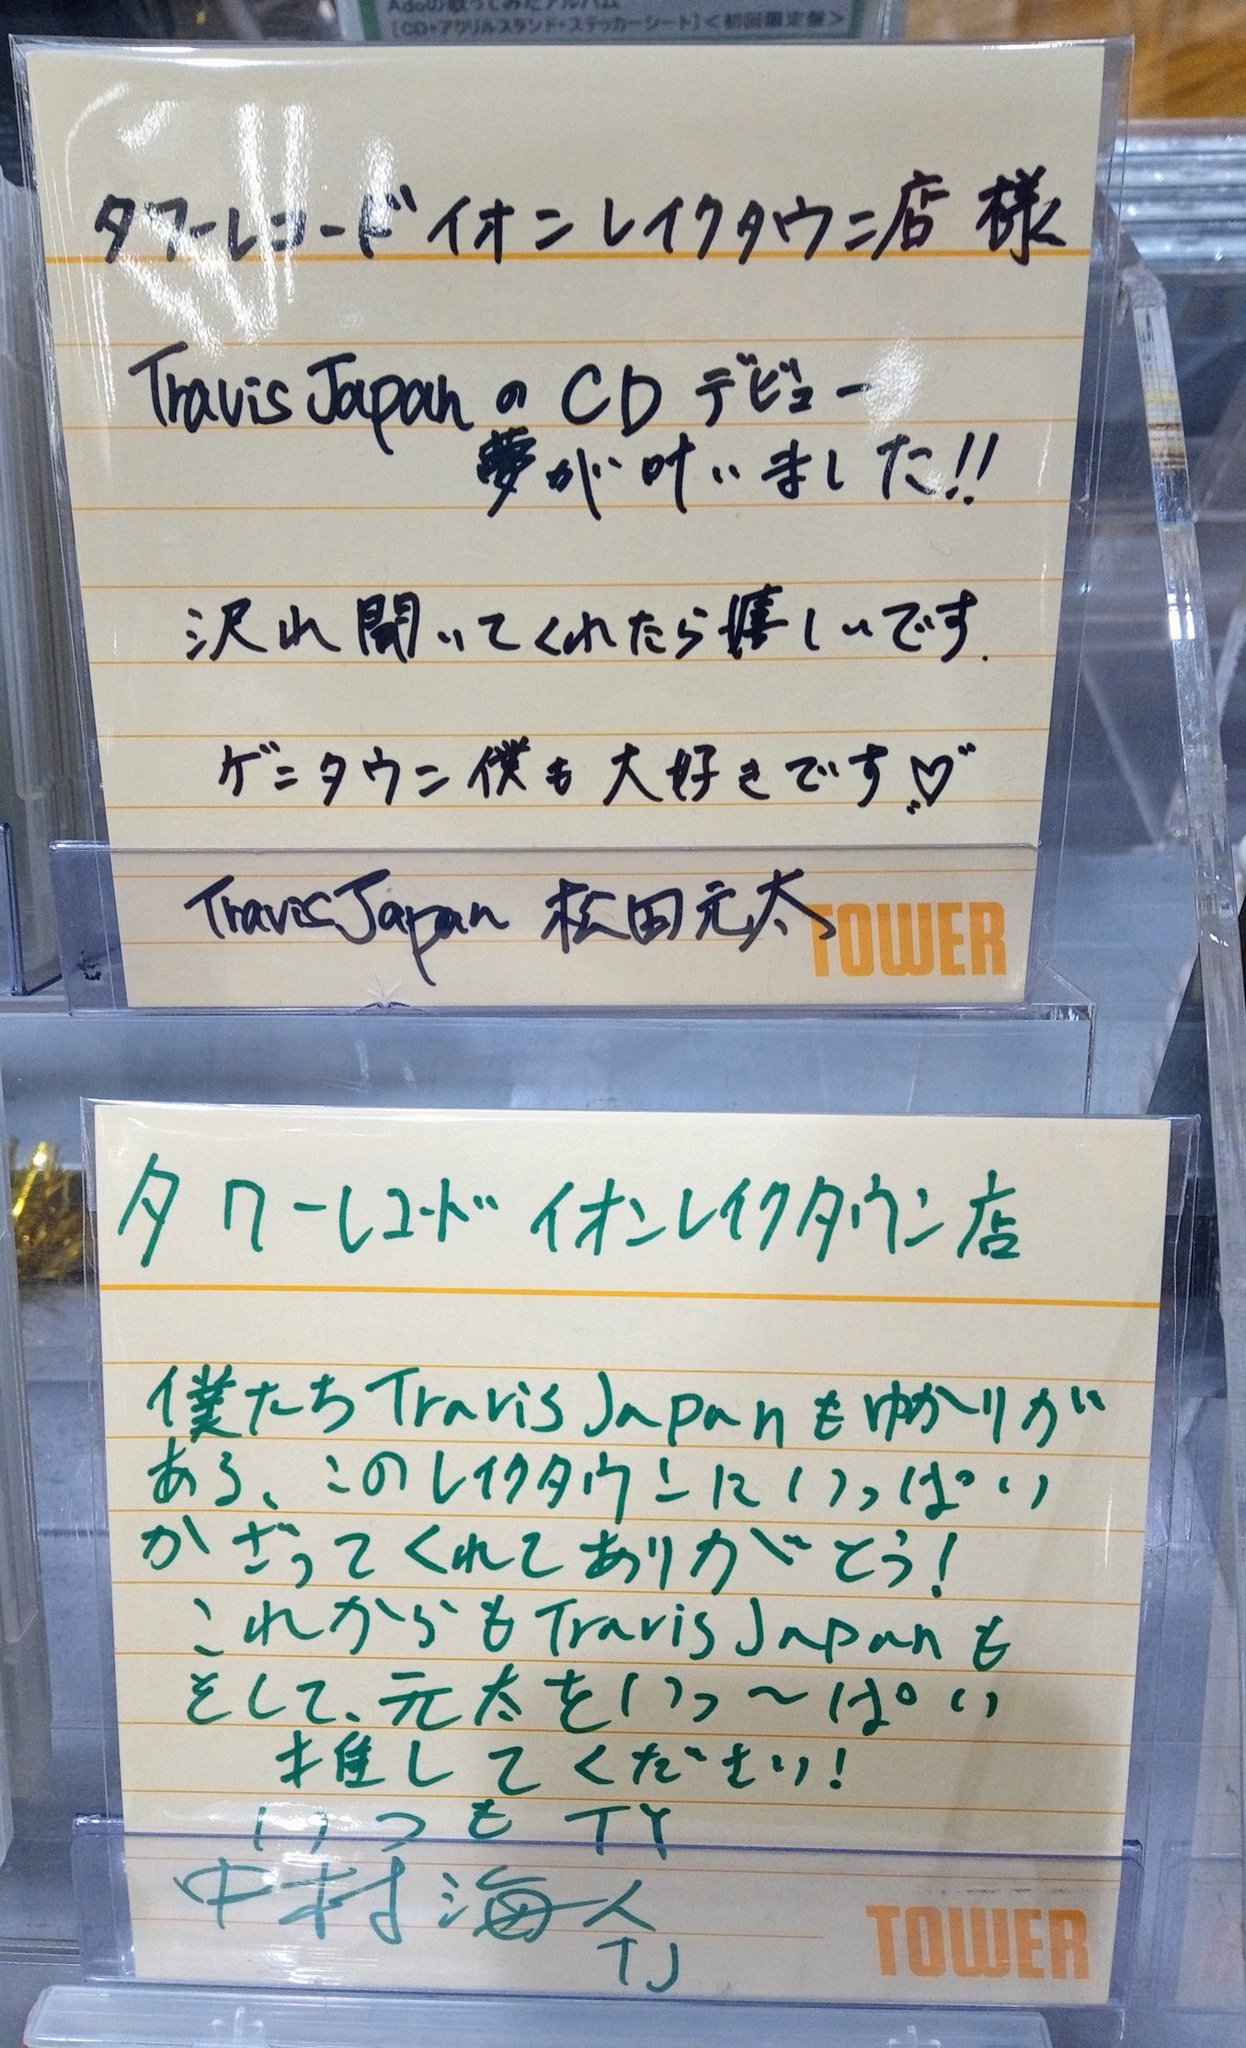 Adoの歌ってみたアルバム
[CD+アクリルスタンド+ステッカーシート]＜初回限定盤＞
タワーレコードイオンレイクタウン店 様
Travis Japanの CD デビュー
夢が叶いました!!
沢山聞いてくれたら嬉しいです.
ゲンタウン僕も大好きです♡
Travis Japan 松田元太
TOWER
タワーレコード イオンレイクタウン店
僕たちTravis Japanもゆかりが
ある、このレイクタウンにいっぱい
かざってくれてありがとう!
これからもTravis Japanも
そして、元太をいっ〜ぱい
推してください!
いつもTY
中村海人
TJ
TOWER